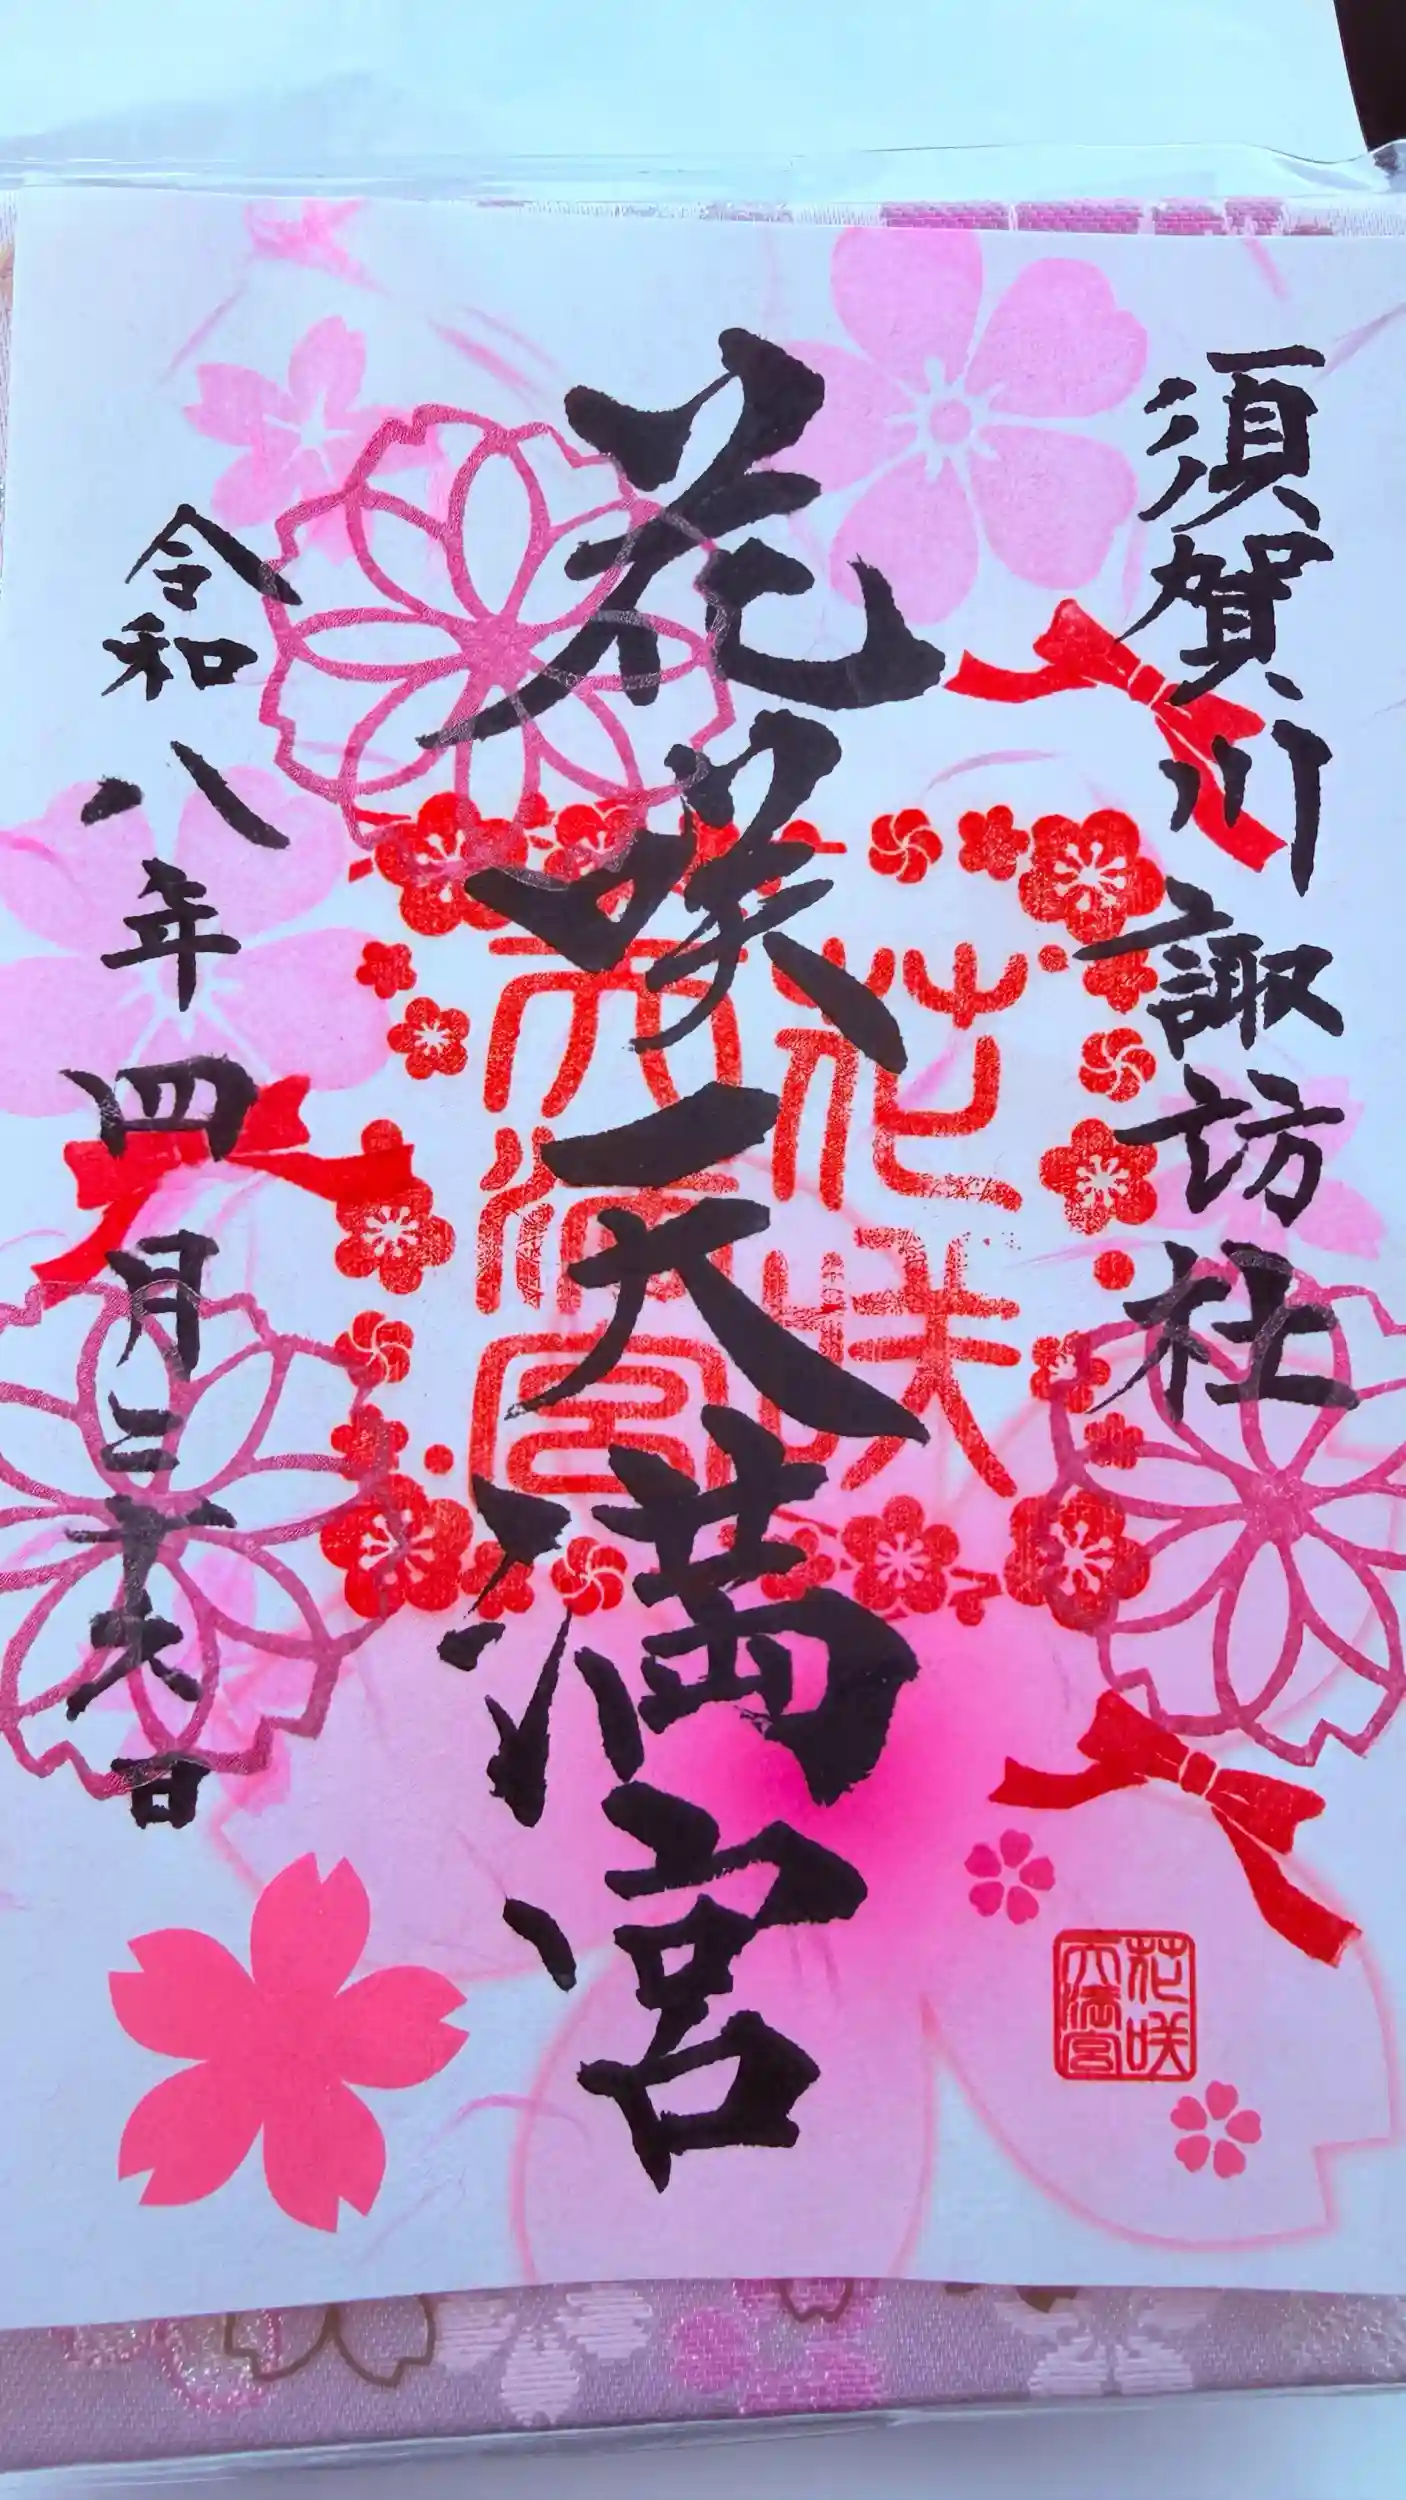 須賀川諏訪社
花咲天満宮
令和八年四月二十六日
花咲
天満宮
花咲
天満宮